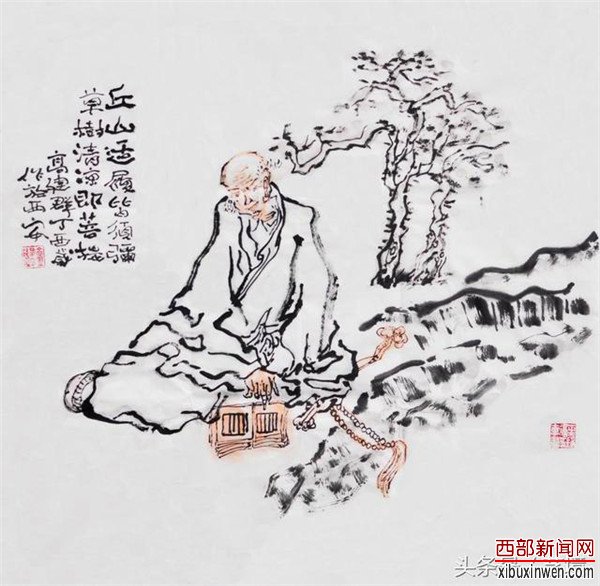 丘山适履皆須彌
菓樹清凉即菩提
高建群丁酉歲
作於西安
头条
西部新闻网
xibuxinwen.com